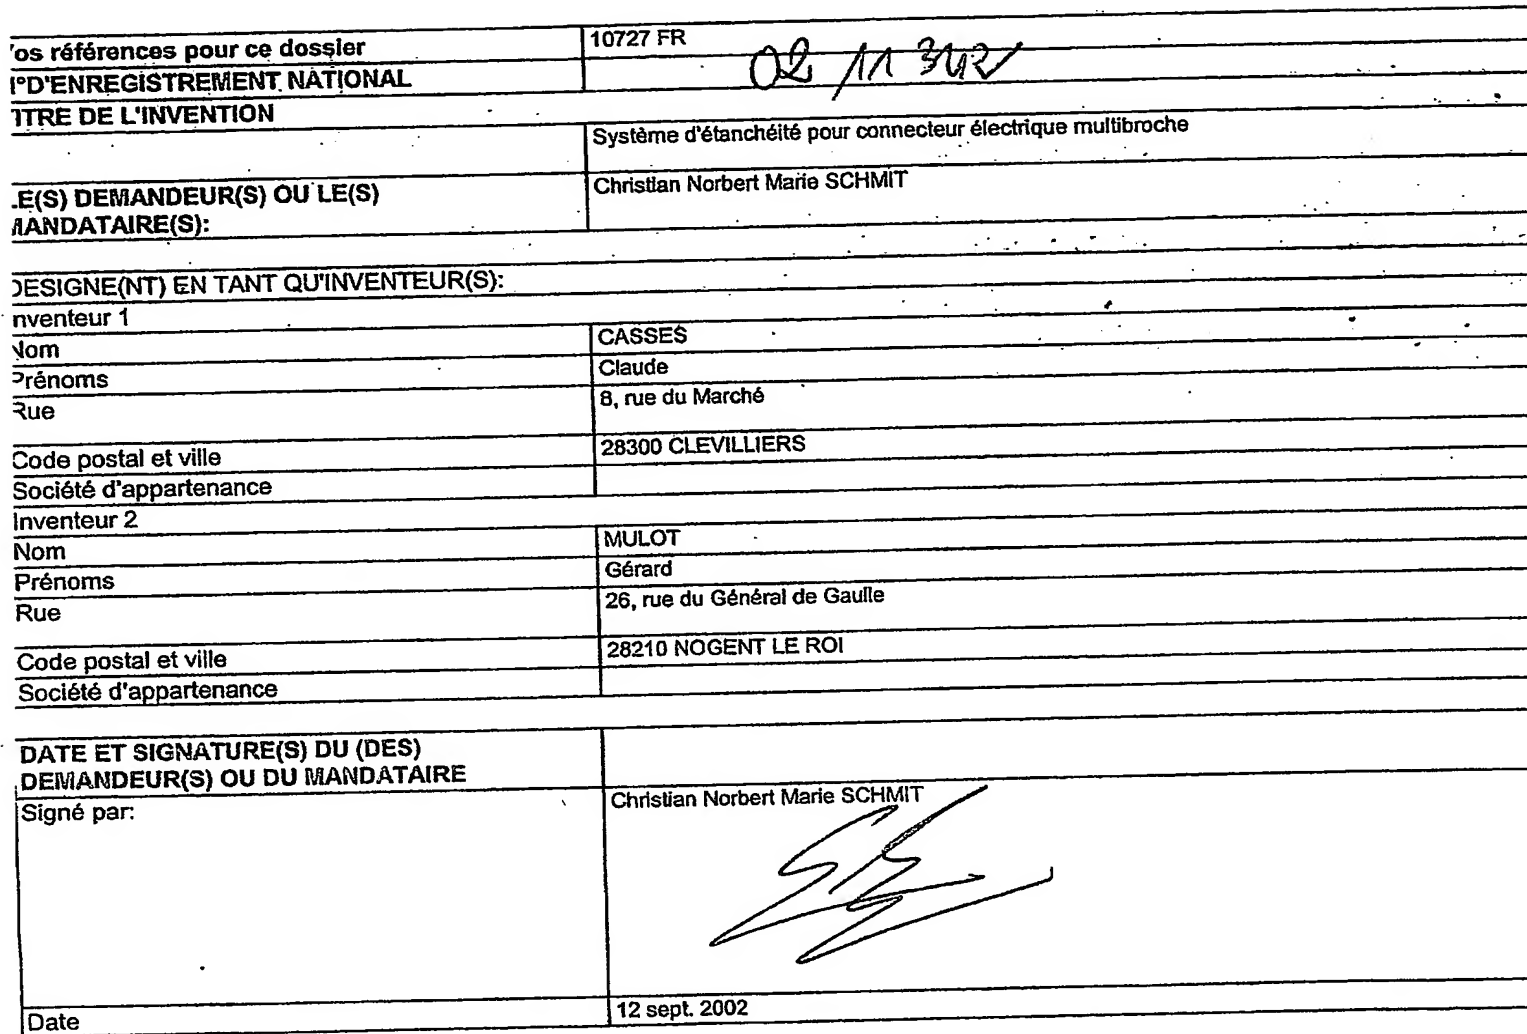 os références pour ce dossier 10727 FR
°D'ENREGISTREMENT NATIONAL 02 11 342
ITRE DE L'INVENTION
Système d'étanchéité pour connecteur électrique multibroche
.E(S) DEMANDEUR(S) OU LE(S) Christian Norbert Marie SCHMIT
MANDATAIRE(S):
DESIGNE(NT) EN TANT QU'INVENTEUR(S):
nventeur 1
Nom CASSES
Prénoms Claude
Rue 8, rue du Marché
Code postal et ville 28300 CLEVILLIERS
Société d'appartenance
Inventeur 2
Nom MULOT
Prénoms Gérard
Rue 26, rue du Général de Gaulle
Code postal et ville 28210 NOGENT LE ROI
Société d'appartenance
DATE ET SIGNATURE(S) DU (DES)
DEMANDEUR(S) OU DU MANDATAIRE
Signé par: Christian Norbert Marie SCHMIT
Date 12 sept. 2002